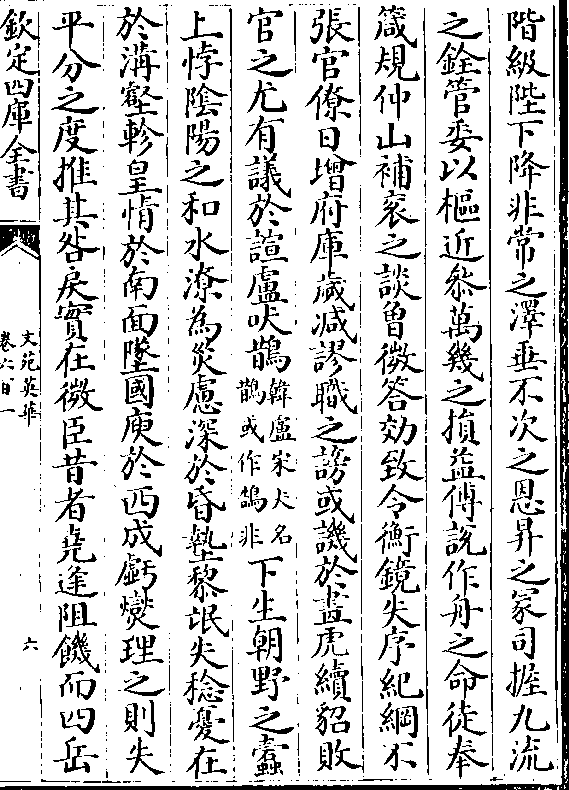 階級陛下降非常之澤垂不次之恩昇之冢司握九流
之銓管委以樞近叅萬幾之損益傅説作舟之命徒奉
箴規仲山補衮之談曾微答効致令衡鏡失序紀綱不
張官僚日增府庫歲減謬職之謗或譏於畫虎續貂敗
官之尤有議於諠盧吠鵲韓盧宋犬名鵲或作鷍非下生朝野之蠹
上悖隂陽之和水潦為災慮深於昏墊黎氓失稔憂在
於溝壑軫皇情於南面墜國庾於西成虧爕理之則失
平分之度推其咎戾實在微臣昔者堯逢阻饑而四岳
欽定四庫全書
文苑英華
卷六百一
六